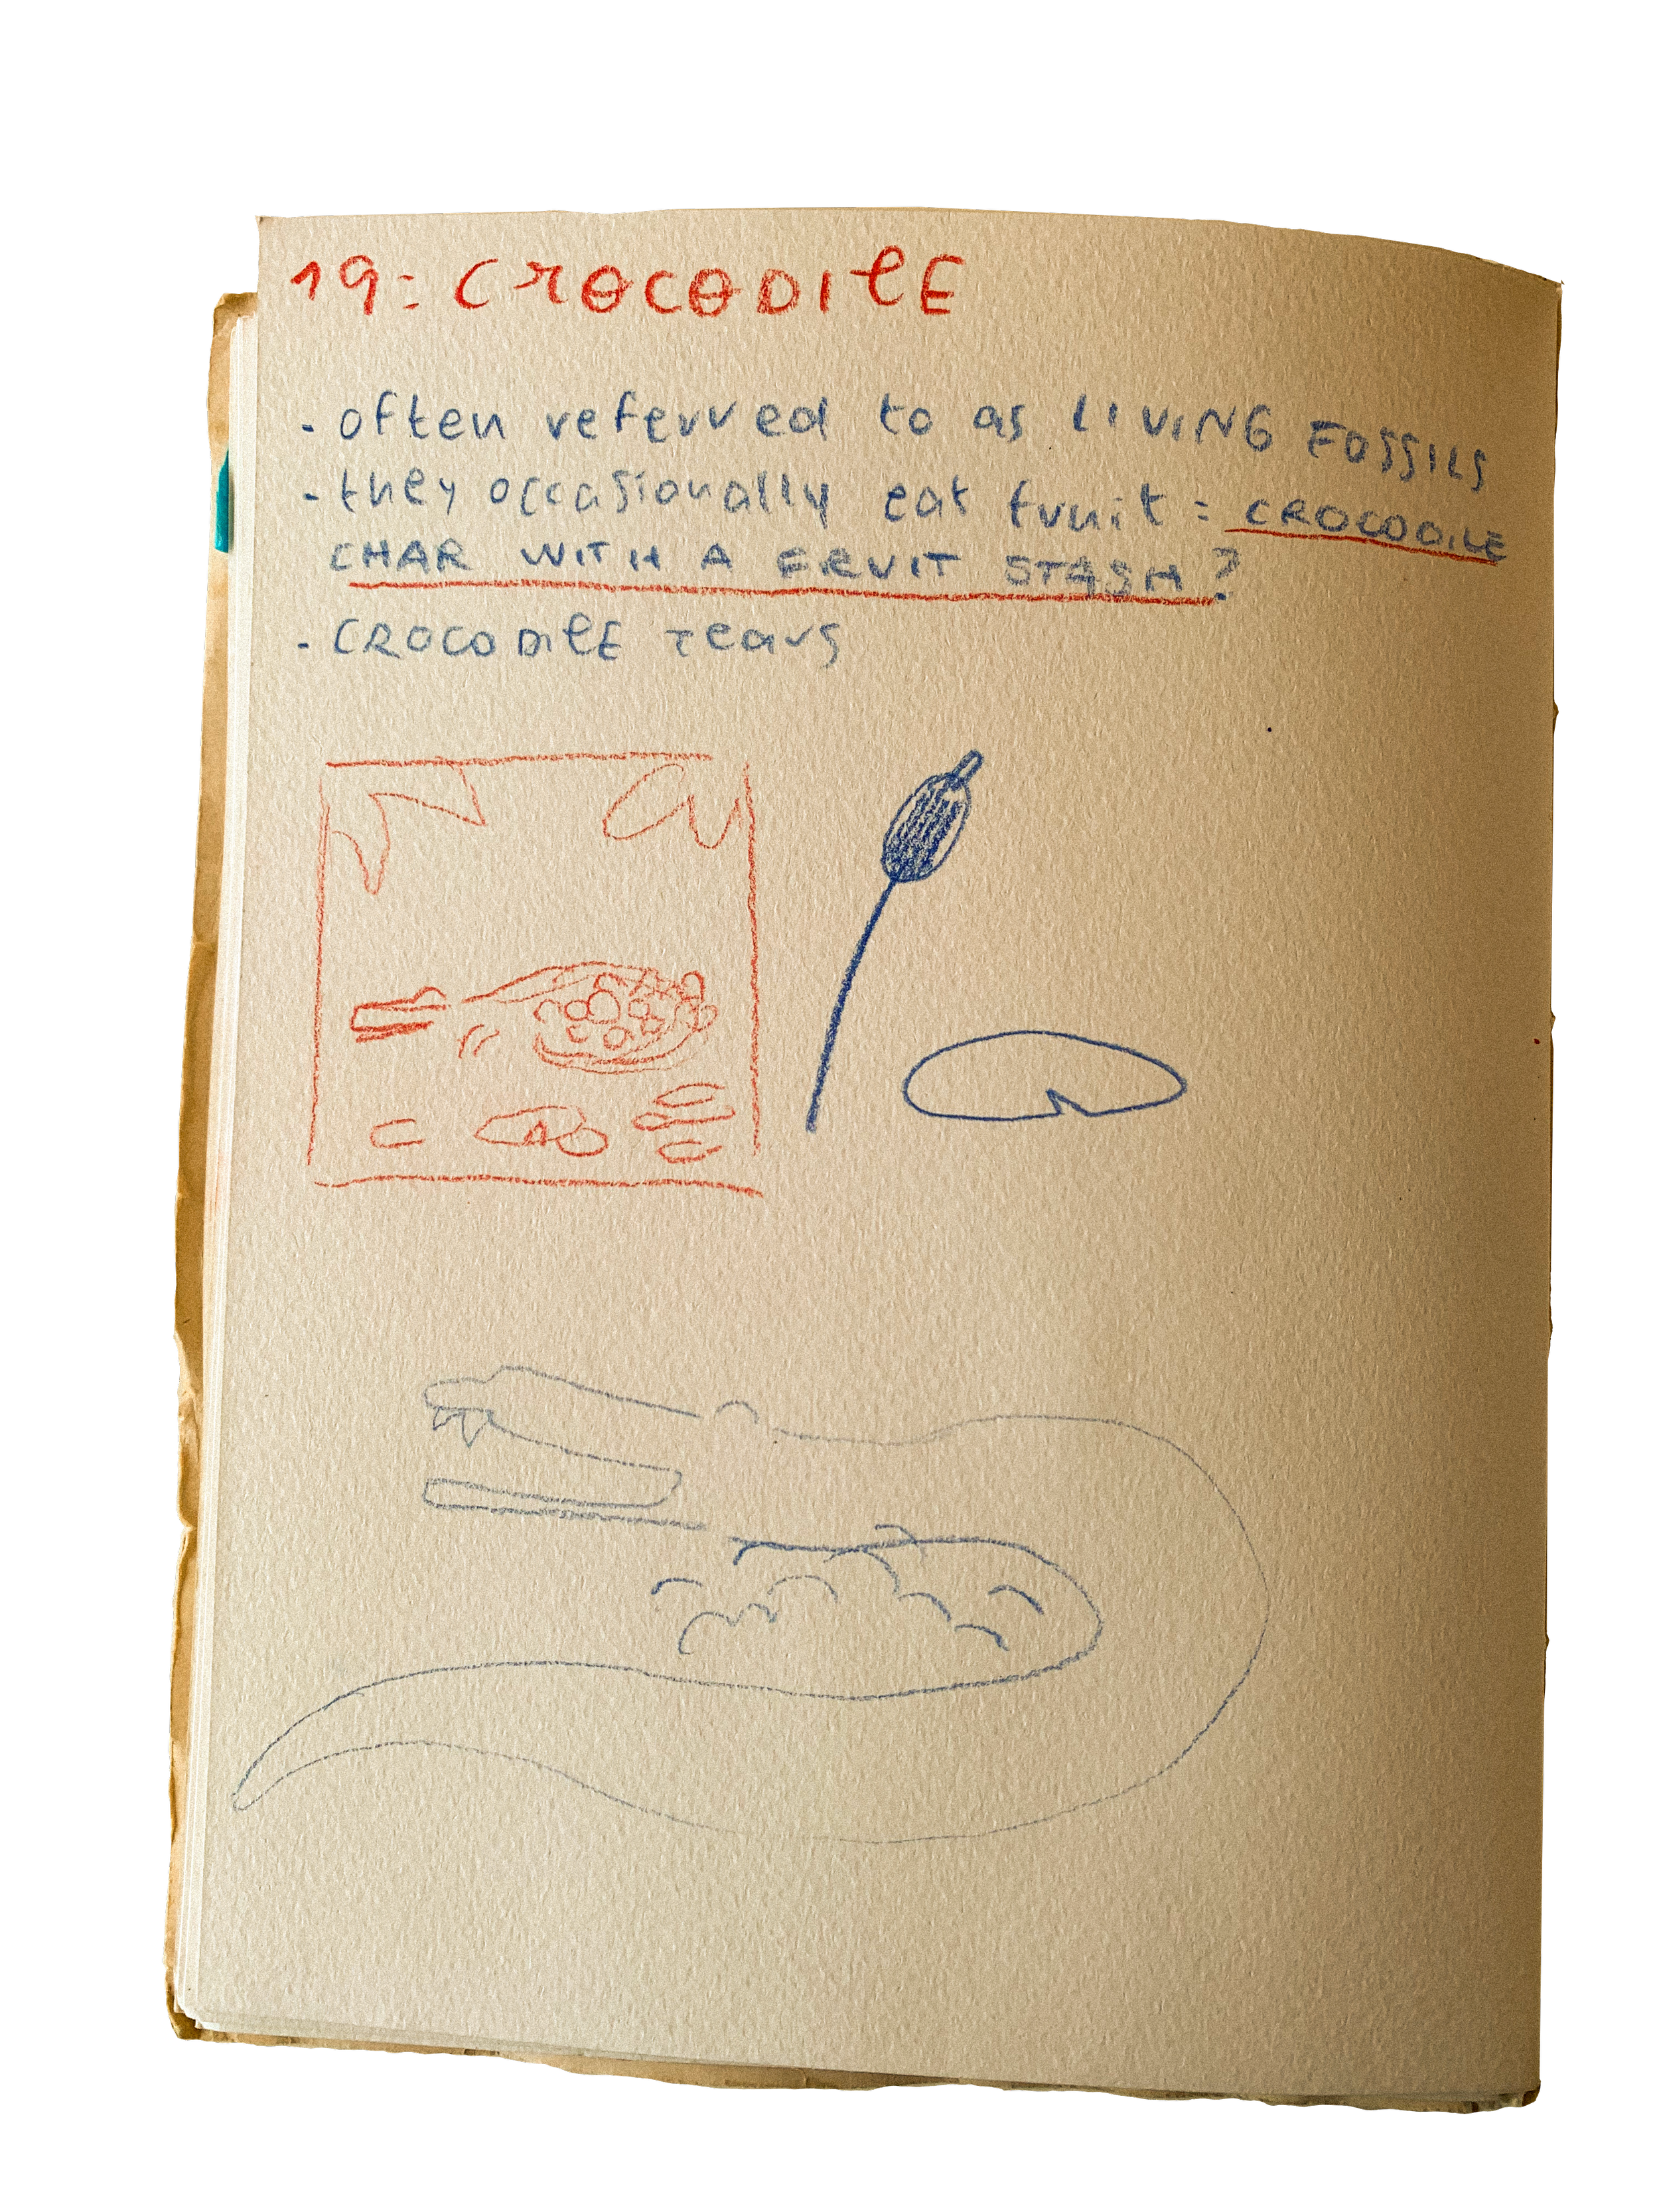 19: CROCODILE
- often referred to as LIVING FOSSILS
- they occasionally eat fruit = CROCODILE
CHAR WITH A FRUIT STASH?
- CROCODILE Tears